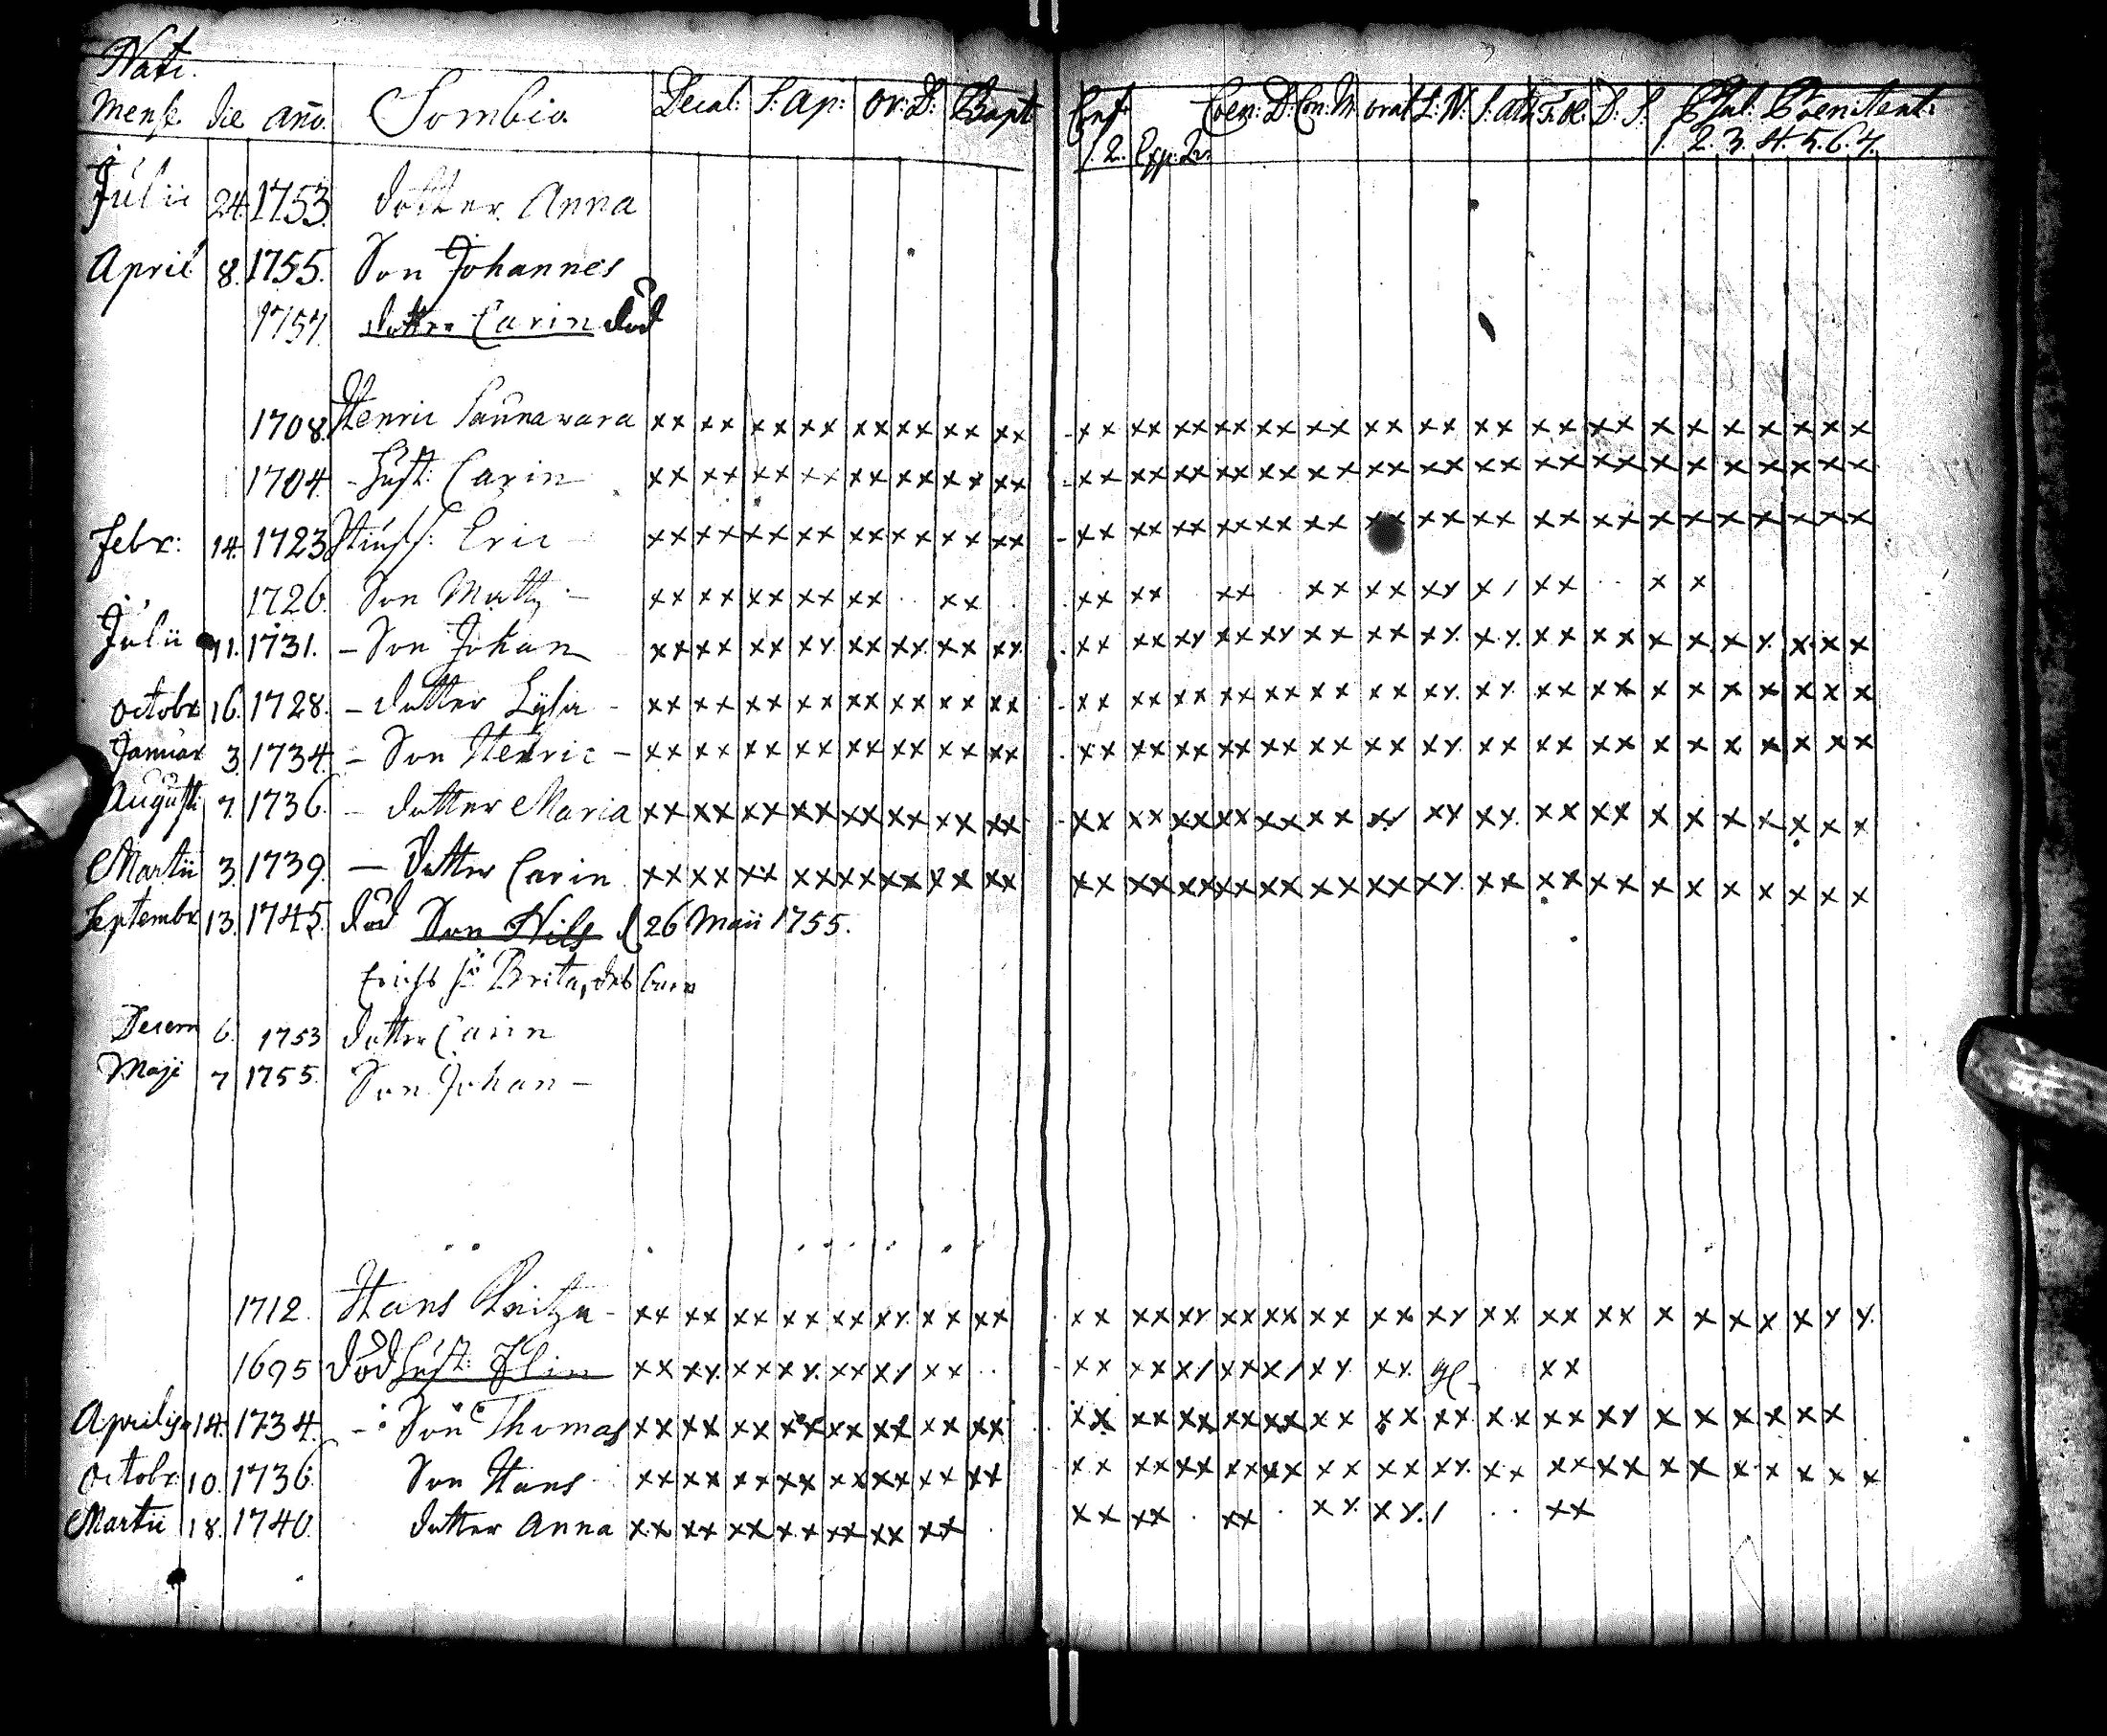 Nati.
Mense die año. Sombio Decal: S: Ap: Or: D: Bapt Conf Coen: D: Con: M: orat L: N: S: Ath: D: S: Psal: Poenitent:
1. 2. 1. 2. 3. 4. 5. 6. 7.
Julii 24. 1753. dotter Anna
April 8. 1755. Son Johannes
1757 dotter Carin död
1708. Henric Saunawara xx xx xx xx xx xx xx xx xx xx xx xx xx xx xx xx xx xx xx x x x x x x x
1704. - Hust: Carin xx xx xx xx xx xx xx xx xx xx xx xx xx xx xx xx xx xx xx x x x x x x x
Febr: 14. 1723 Eric - xx xx xx xx xx xx xx xx - xx xx xx xx xx xx xx xx xx xx xx x x x x x x x
1726. Son Matts - xx xx xx xx xx . . xx . xx xx xx xx xx xx x / xx . . x x
Julii 11. 1731. - Son Johan xx xx xx xx xx xx xx xx xx xx xx xx xx xx xx xx xx xx xx x x x x x x x
octobr 16. 1728. - dotter Lisa - xx xx xx xx xx xx xx xx xx xx xx xx xx xx xx xx xx xx xx x x x x x x x
Januar 3. 1734. - Son Henric - xx xx xx xx xx xx xx xx xx xx xx xx xx xx xx xx xx xx xx x x x x x x x
Augusti 7. 1736. - dotter Maria xx xx xx xx xx xx xx xx xx xx xx xx xx xx x/ xx xx xx xx x x x x x x x
Martii 3. 1739. - dotter Carin xx xx xx xx xx xx xx xx xx xx xx xx xx xx xx xx xx xx xx x x x x x x x
Septembr 13. 1745. död Son Nils d 26 Maii 1755.
Erichs hu Brita, des barn
Decem 6. 1753 dotter Carin
Maji 7 1755. Son Johan -
1712. Hans - xx xx xx xx xx xx xx xx xx xx xx xx xx xx xx xx xx xx xx x x x x x x x
1695 död Hust: Elin xx xx xx xx xx x/ xx . . - xx xx x/ xx x/ xx xx xx
Aprilis 14. 1734. - Son Thomas xx xx xx xx xx xx xx xx xx xx xx xx xx xx xx xx xx xx xx x x x x x x
octobr 10. 1736. Son Hans xx xx xx xx xx xx xx xx xx xx xx xx xx xx xx xx xx xx xx x x x x x x x
Martii 18. 1740. dotter Anna xx xx xx xx xx xx xx . xx xx . xx . xx xx / . . xx